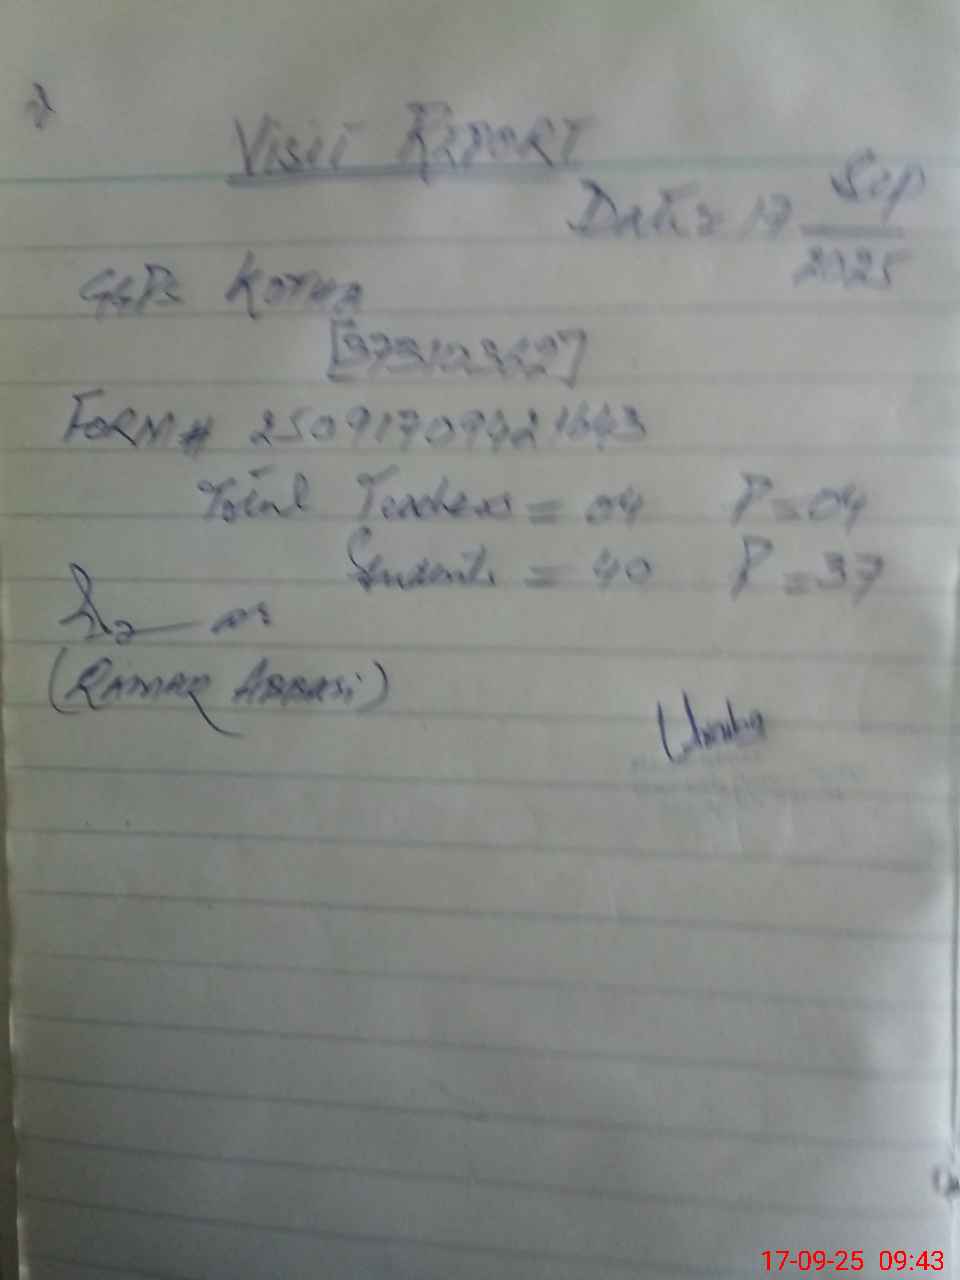 Visit REPORT
Date 17 Sep
2025
GGPS KOTHA
FORM # 25091709421643
Total Teachers = 04 P = 04
Students = 40 P = 37
(QAMAR ABBASi)
17-09-25 09:43